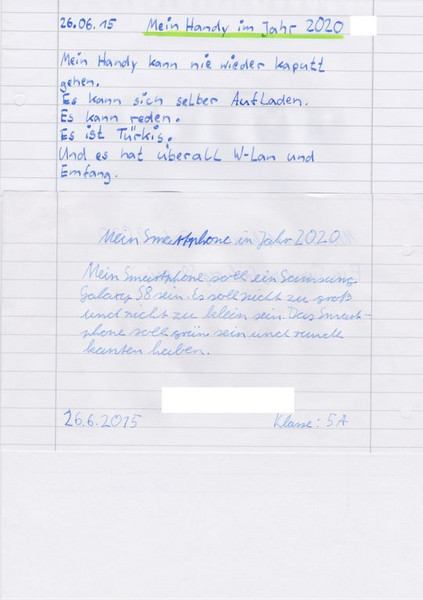 26.06.15 Mein Handy im Jahr 2020
Mein Handy kann nie wieder kaputt
gehen.
Es kann sich selber Aufladen.
Es kann reden.
Es ist Türkis.
Und es hat überall W-Lan und
Emfang.
Mein Smartphone in Jahr 2020
Mein Smartphone soll ein Samsung
Galaxy S8 sein. Es soll nicht zu groß
und nicht zu klein sein. Das Smart-
phone soll grün sein und runde
kanten haben.
26.6.2015 Klasse: 5A